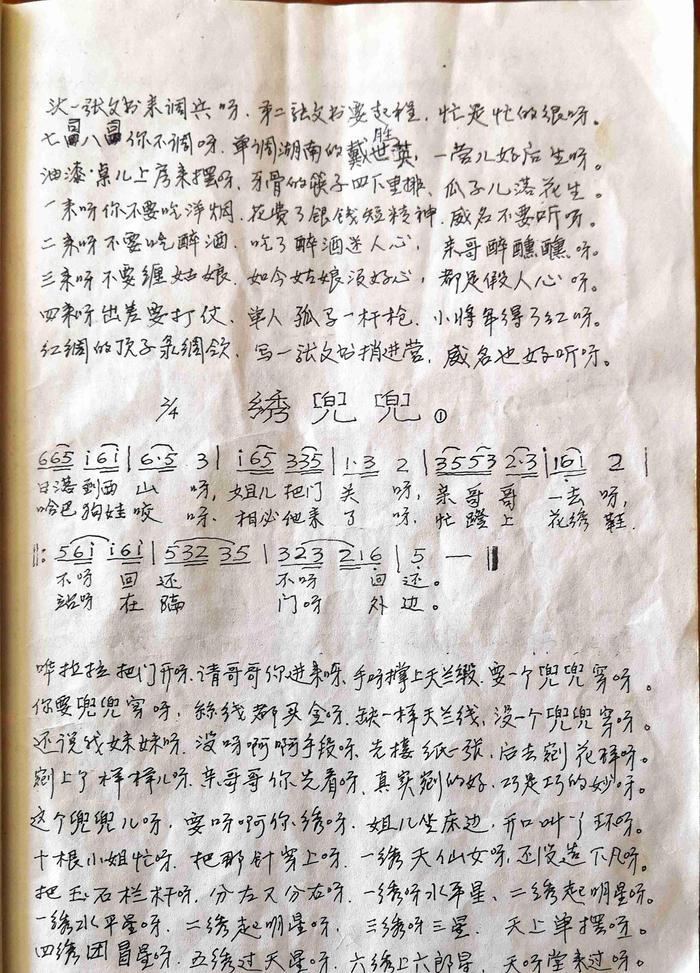 头一张文书来调兵呀、第二张文书要起程、忙是忙的很呀。
七冒八冒你不调呀、单调湖南的戴世英胜、一营儿好后生呀。
油漆·桌儿上房来摆呀、牙骨的筷子四下里排、瓜子儿落花生。
一来呀你不要吃洋烟、花费了银钱短精神、威名不要听呀。
二来呀不要吃醉酒、吃了醉酒迷人心，来哥醉醺醺呀。
三来呀不要缠姑娘、如今姑娘没好心，都是假人心呀。
四来呀出差要打仗、单人孤子一杆枪、小将年得了红呀。
红绸的顶子录绸领、写一张文书捎进营、威名也好听呀。
2/4 绣兜兜①
665 i6i | 6·5 3 | i65 335 | 1·3 2 | 3553 2·3 | 161 2 |
日落到西山呀，姐儿把门关呀，亲哥哥一去呀，
哈巴狗娃咬呀、想必他来了呀、忙蹬上花绣鞋.
‖: 56i i6i | 532 35 | 323 216 | 5 — ‖
不呀回还不呀回还。
站呀在隔门呀外边。
哗拉拉把门开呀、请哥哥你进来呀、手呀撑上天兰缎、要一个兜兜穿呀。
你要兜兜穿呀，丝线都买全呀、缺一样天兰线，没一个兜兜穿呀。
还说我妹妹呀、没呀啊啊手段呀、先楼纸一张，后去剜花样呀。
剜上了样样儿呀、亲哥哥你先看呀、真实剜的好、巧是巧的妙呀。
这个兜兜儿呀，要呀啊你绣呀、姐儿坐床边，开口叫丫环呀。
十根小姐忙呀、把那针穿上呀、一绣天仙女呀，还没造下凡呀。
把玉石栏杆呀、分左又分右呀、一绣呀水平星、二绣起明星呀。
一绣水平星呀、二绣起明星呀、三绣呀三星、天上单摆呀。
四绣团冒星呀、五绣过天星呀、六绣上六郎星、天呀堂来过呀。